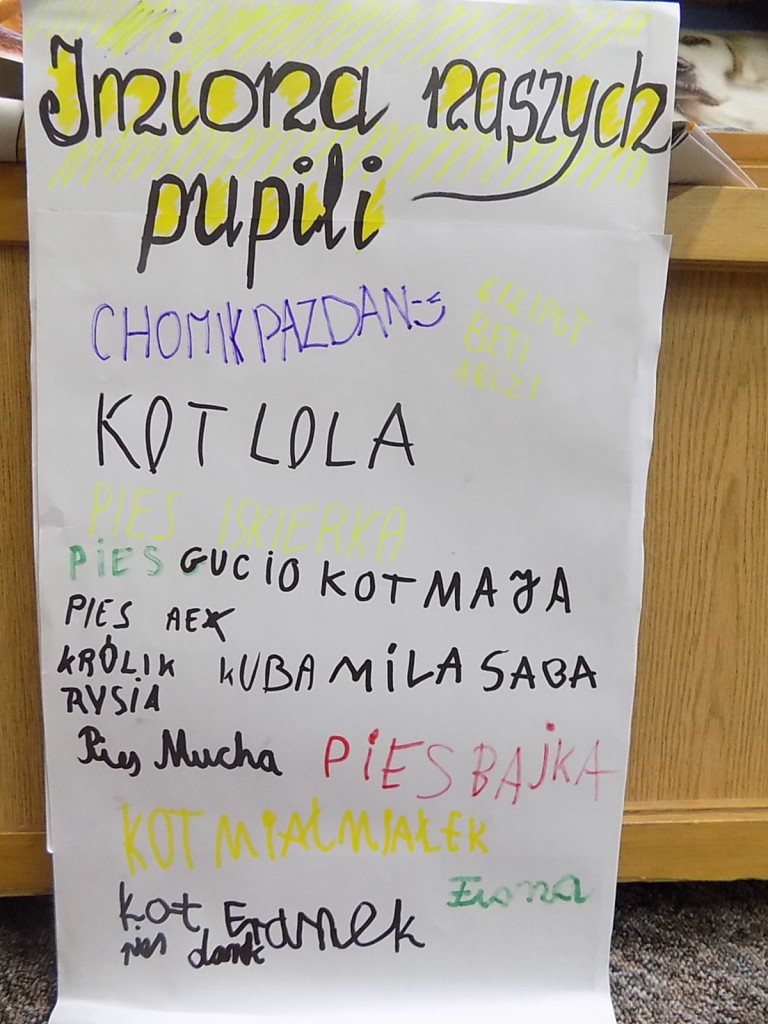 Imiona naszych
pupili
CHOMIK PAZDAN
LILIPUT
BETI
ARCZI
KOT LOLA
PIES ISKIERKA
PIES GUCIO KOT MAJA
PIES AEX
KRÓLIK KUBA MILA SABA
RYSIA
Pies Mucha PIES BAJKA
KOT MIAŁMIAŁEK
Kot
pies